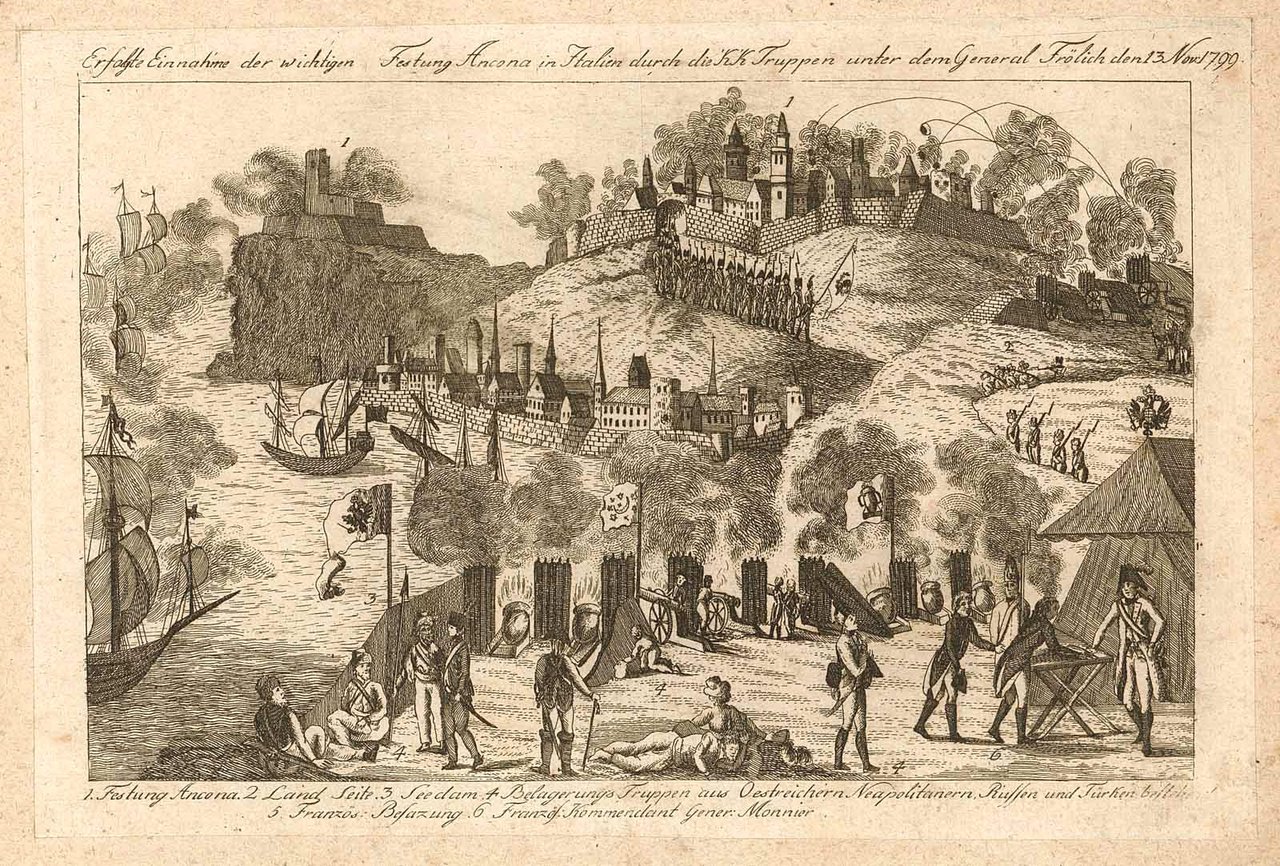 Erfolgte Einnahme der wichtigen Festung Ancona in Italien durch die K.K. Truppen unter dem General Frölich den 13 Nov. 1799.
1
1
2
3
4
4
4
6
1. Festung Ancona. 2 Land Seite. 3 Seedam. 4 Belagerungs Truppen aus Oestreichern, Neapolitanern, Russen und Türken
5. Französ: Besazung. 6 Französ. Kommendant Gener: Monnier.